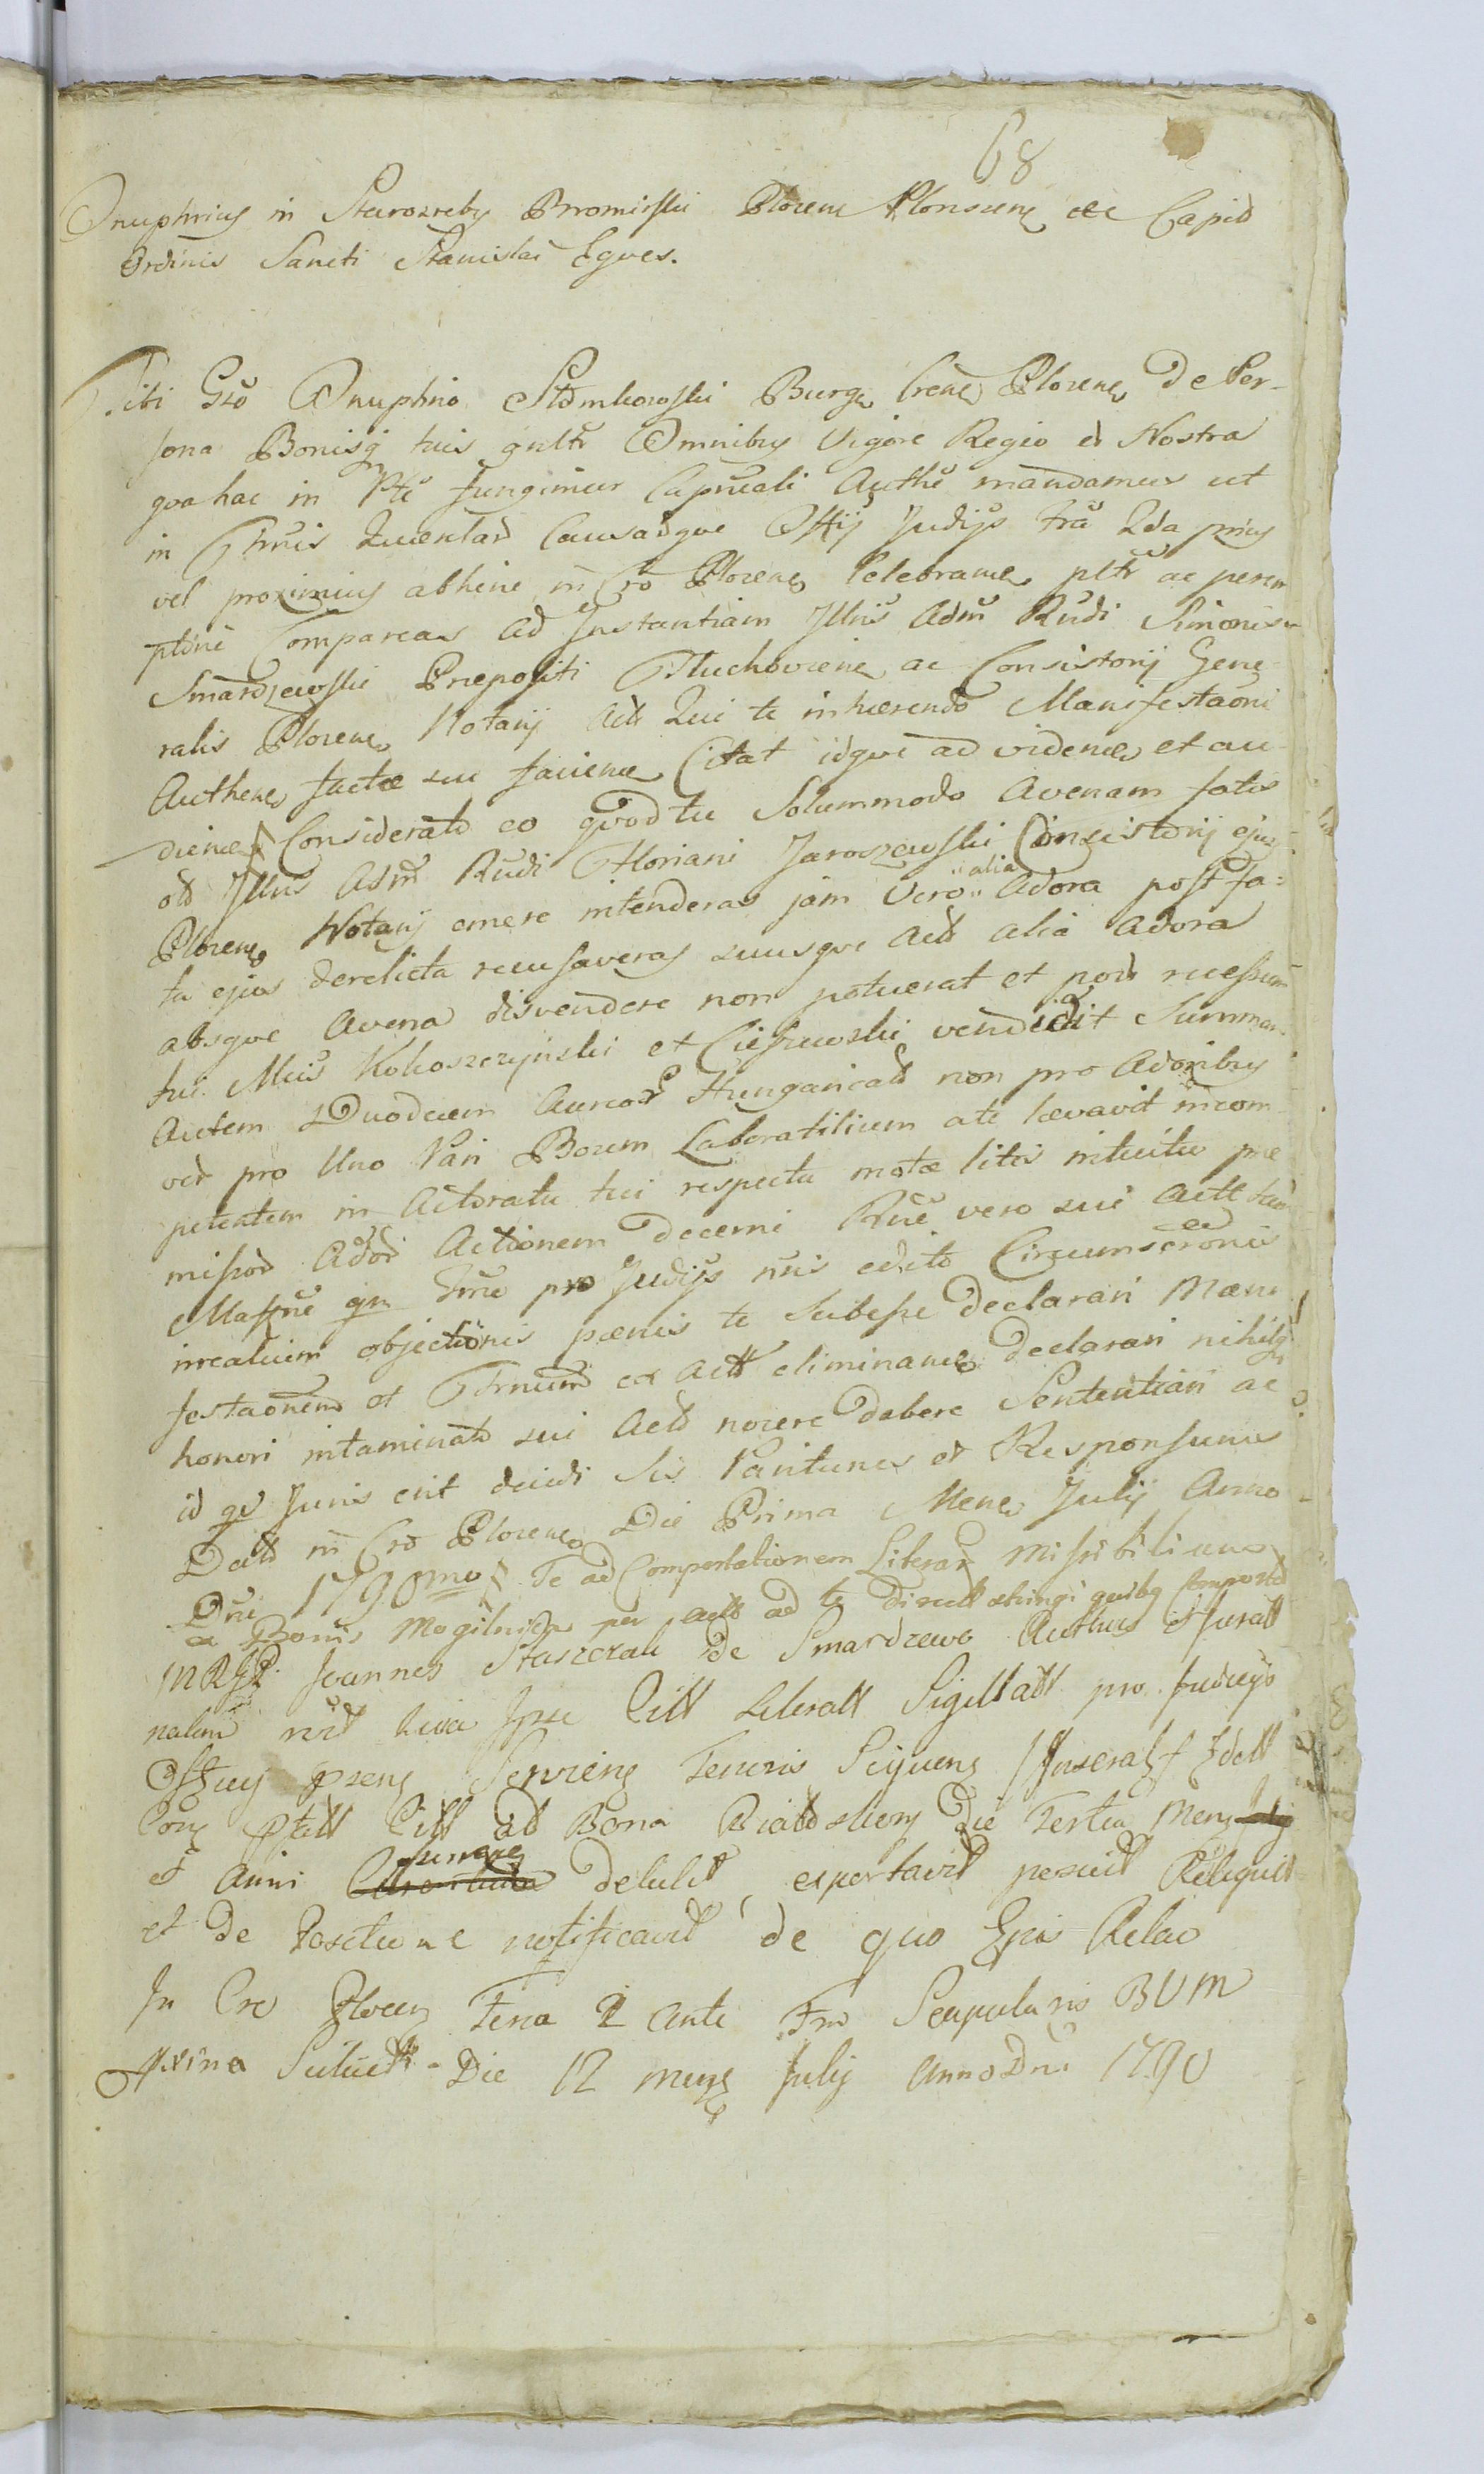 68
Onuphrius in Starozreby Bromiski Plocens Plonscens etc Capid
Ordinis Sancti Stanislai Eques.
Tibi Gso Onuphrio Slomkowski Burg Crens Plocens De Per-
sona Bonisq tuis gnltr Omnibus Vigore Regio et Nostra
qva hac in Pte fungimur Capneali Autthe mandamus ut
in Trnis Querelar Causarqve Offij Judijs fra 2da prius
vel proximius abhinc in Cro Plocens Celebrans pltr ac perem
ptorie Compareas Ad Instantiam Illris Adm Rndi Simonis
Smardzewski Praepositi Tluchoviens ac Consistorij Gene-
ralis Plocens Notarij Actt Qui te inhaerendo Manifestaoni
Authens factae seu faciens Citat idqve ad videns et au-
diens Considerato eo qvod tu Solummodo Avenam satis
ad Illris Adm Rndi Floriani Jaroszewski Consistorij ejus
Plocens Notarij emere intenderas jam Vero alia Adora post fa=
ta ejus derelicta recusaveras suusqve Actt alia Adora
absqve Avena disvendere non potuerat et post recessum
tui Mcis Kokoszczynski et Ciessewski vendidit Summam
Autem Duodecim Aureor Hungaricalt non pro Adoribus
ved pro Uno Pari Boum Laboratilium a te levavit incom
petentem in Actoratu tui respectu motae litis intuitu prae
missor Ador Actionem decerni Rne vero sui Actt tan
Massne qm Trne pro Judijs nris edito Circumscronis
irrealium objectionis paenis te Subesse declarari Mani
festaonem et Trnum ex Actt eliminans declarari nihilq
honori intaminato sui Actt nocere debere Sententiari ac
id qd Juris erit decidi Sis Pariturus et Responsurus
Datt in Cro Plocens Die Prima Mens Julij Anno
Dni 1790mo Te ad Comportationem Literar Missibilium
ex Bonis Mogilnica per Actt ad te direct stringi quibq Comporto
MRGP Joannes Staszczak De Smardzewo Authus et Juratt
nalem rcit Quia Ipse Citt Literatt Sigillatt pro Judicijs
Offcij pzens Servicng Tenoris Seqvens /Inserat/ Idett
Corg Ptatt Citt ad Bona Biatdskorg Die Tertia Mens
et Anni currens detulit exportavit posuit Reliqvit
et De Positione notificavit de quo Ejus Relao
In Cro Plocens Feria 2 ante Fm Scapularis BVM
pxima Scilicett Die 12 mens Julij Anno Dni 1790